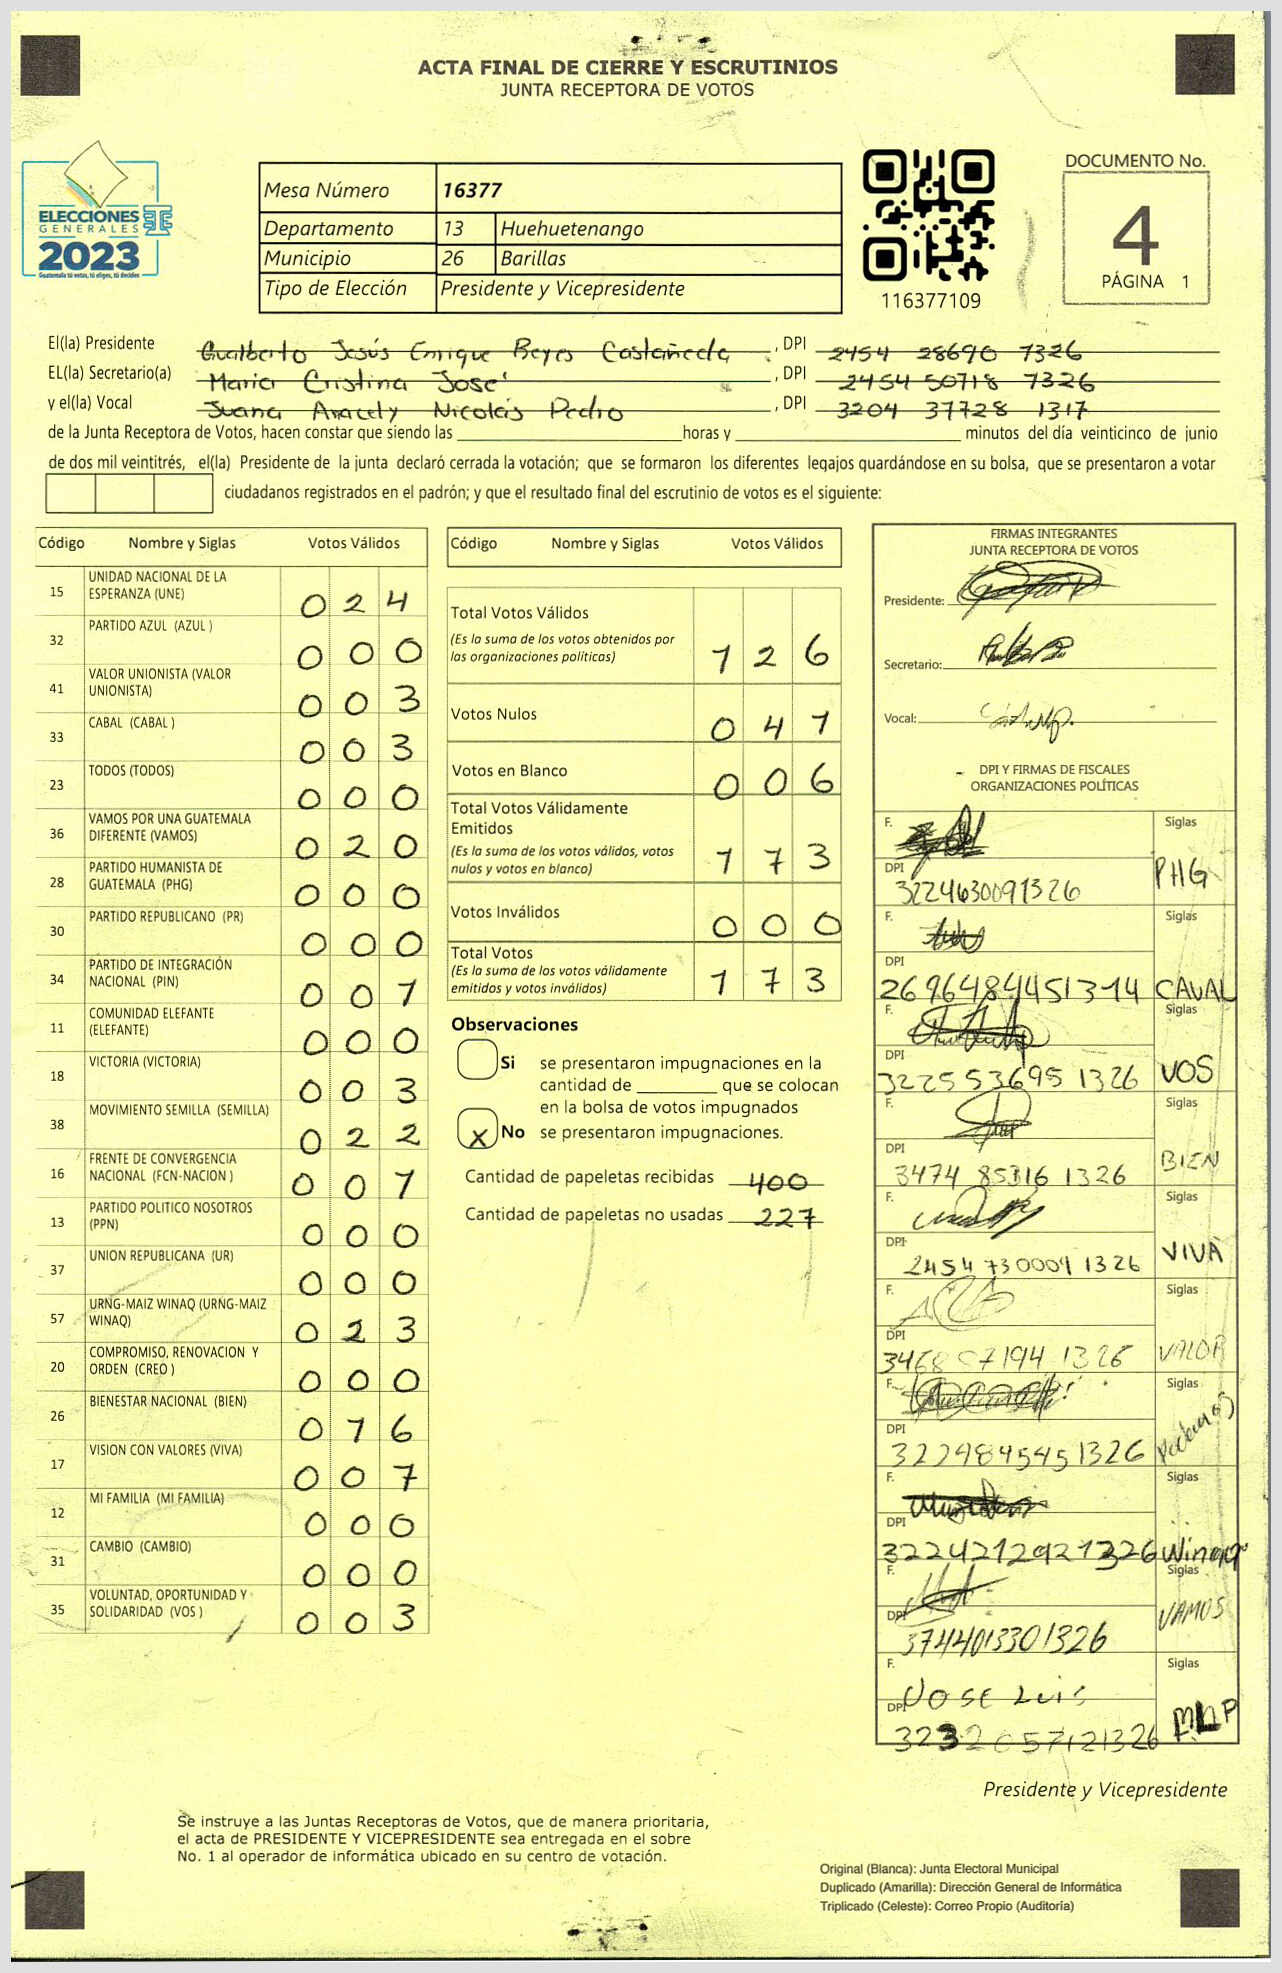 ACTA FINAL DE CIERRE Y ESCRUTINIOS
JUNTA RECEPTORA DE VOTOS
ELECCIONES
GENERALES
2023
Guatemala tú votas, tú eliges, tú decides
Mesa Número 16377
Departamento 13 Huehuetenango
Municipio 26 Barillas
Tipo de Elección Presidente y Vicepresidente
116377109
DOCUMENTO No.
4
PÁGINA 1
El(la) Presidente Gualberto Jesús Enrique Reyes Castañeda, DPI 2454 28690 1326
EL(la) Secretario(a) Maria Cristina José, DPI 2454 50718 1326
y el(la) Vocal Juana Aracely Nicolás Pedro, DPI 3204 37728 1317
de la Junta Receptora de Votos, hacen constar que siendo las horas y minutos del día veinticinco de junio
de dos mil veintitrés, el(la) Presidente de la junta declaró cerrada la votación; que se formaron los diferentes legajos guardándose en su bolsa, que se presentaron a votar
ciudadanos registrados en el padrón; y que el resultado final del escrutinio de votos es el siguiente:
Código Nombre y Siglas Votos Válidos
15 UNIDAD NACIONAL DE LA
ESPERANZA (UNE) 0 2 4
32 PARTIDO AZUL (AZUL ) 0 0 0
41 VALOR UNIONISTA (VALOR
UNIONISTA) 0 0 3
33 CABAL (CABAL ) 0 0 3
23 TODOS (TODOS) 0 0 0
36 VAMOS POR UNA GUATEMALA
DIFERENTE (VAMOS) 0 2 0
28 PARTIDO HUMANISTA DE
GUATEMALA (PHG) 0 0 0
30 PARTIDO REPUBLICANO (PR) 0 0 0
34 PARTIDO DE INTEGRACIÓN
NACIONAL (PIN) 0 0 1
11 COMUNIDAD ELEFANTE
(ELEFANTE) 0 0 0
18 VICTORIA (VICTORIA) 0 0 3
38 MOVIMIENTO SEMILLA (SEMILLA) 0 2 2
16 FRENTE DE CONVERGENCIA
NACIONAL (FCN-NACION ) 0 0 1
13 PARTIDO POLITICO NOSOTROS
(PPN) 0 0 0
37 UNION REPUBLICANA (UR) 0 0 0
57 URNG-MAIZ WINAQ (URNG-MAIZ
WINAQ) 0 2 3
20 COMPROMISO, RENOVACION Y
ORDEN (CREO ) 0 0 0
26 BIENESTAR NACIONAL (BIEN) 0 1 6
17 VISION CON VALORES (VIVA) 0 0 7
12 MI FAMILIA (MI FAMILIA) 0 0 0
31 CAMBIO (CAMBIO) 0 0 0
35 VOLUNTAD, OPORTUNIDAD Y
SOLIDARIDAD (VOS ) 0 0 3
Código Nombre y Siglas Votos Válidos
Total Votos Válidos
(Es la suma de los votos obtenidos por
las organizaciones políticas) 1 2 6
Votos Nulos 0 4 1
Votos en Blanco 0 0 6
Total Votos Válidamente
Emitidos
(Es la suma de los votos válidos, votos
nulos y votos en blanco) 1 7 3
Votos Inválidos 0 0 0
Total Votos
(Es la suma de los votos válidamente
emitidos y votos inválidos) 1 7 3
Observaciones
Si se presentaron impugnaciones en la
cantidad de que se colocan
en la bolsa de votos impugnados
X No se presentaron impugnaciones.
Cantidad de papeletas recibidas 400
Cantidad de papeletas no usadas 227
FIRMAS INTEGRANTES
JUNTA RECEPTORA DE VOTOS
Presidente:
Secretario:
Vocal:
DPI Y FIRMAS DE FISCALES
ORGANIZACIONES POLÍTICAS
F. Siglas
DPI 3224630091326 PHG
F. Siglas
DPI 2696484451314 CAVAL
F. Siglas
DPI 322553695 1326 VOS
F. Siglas
DPI 3474 85316 1326 BIEN
F. Siglas
DPI 2454 730009 1326 VIVA
F. Siglas
DPI VALOR
F. Siglas
DPI 322484545 1326 Podemos
F. Siglas
DPI 3224212921326 Winaq
F. Siglas
DPI 3744013301326 VAMOS
F. Siglas
JOSE LUIS
DPI MLP
Presidente y Vicepresidente
Se instruye a las Juntas Receptoras de Votos, que de manera prioritaria,
el acta de PRESIDENTE Y VICEPRESIDENTE sea entregada en el sobre
No. 1 al operador de informática ubicado en su centro de votación.
Original (Blanca): Junta Electoral Municipal
Duplicado (Amarilla): Dirección General de Informática
Triplicado (Celeste): Correo Propio (Auditoría)